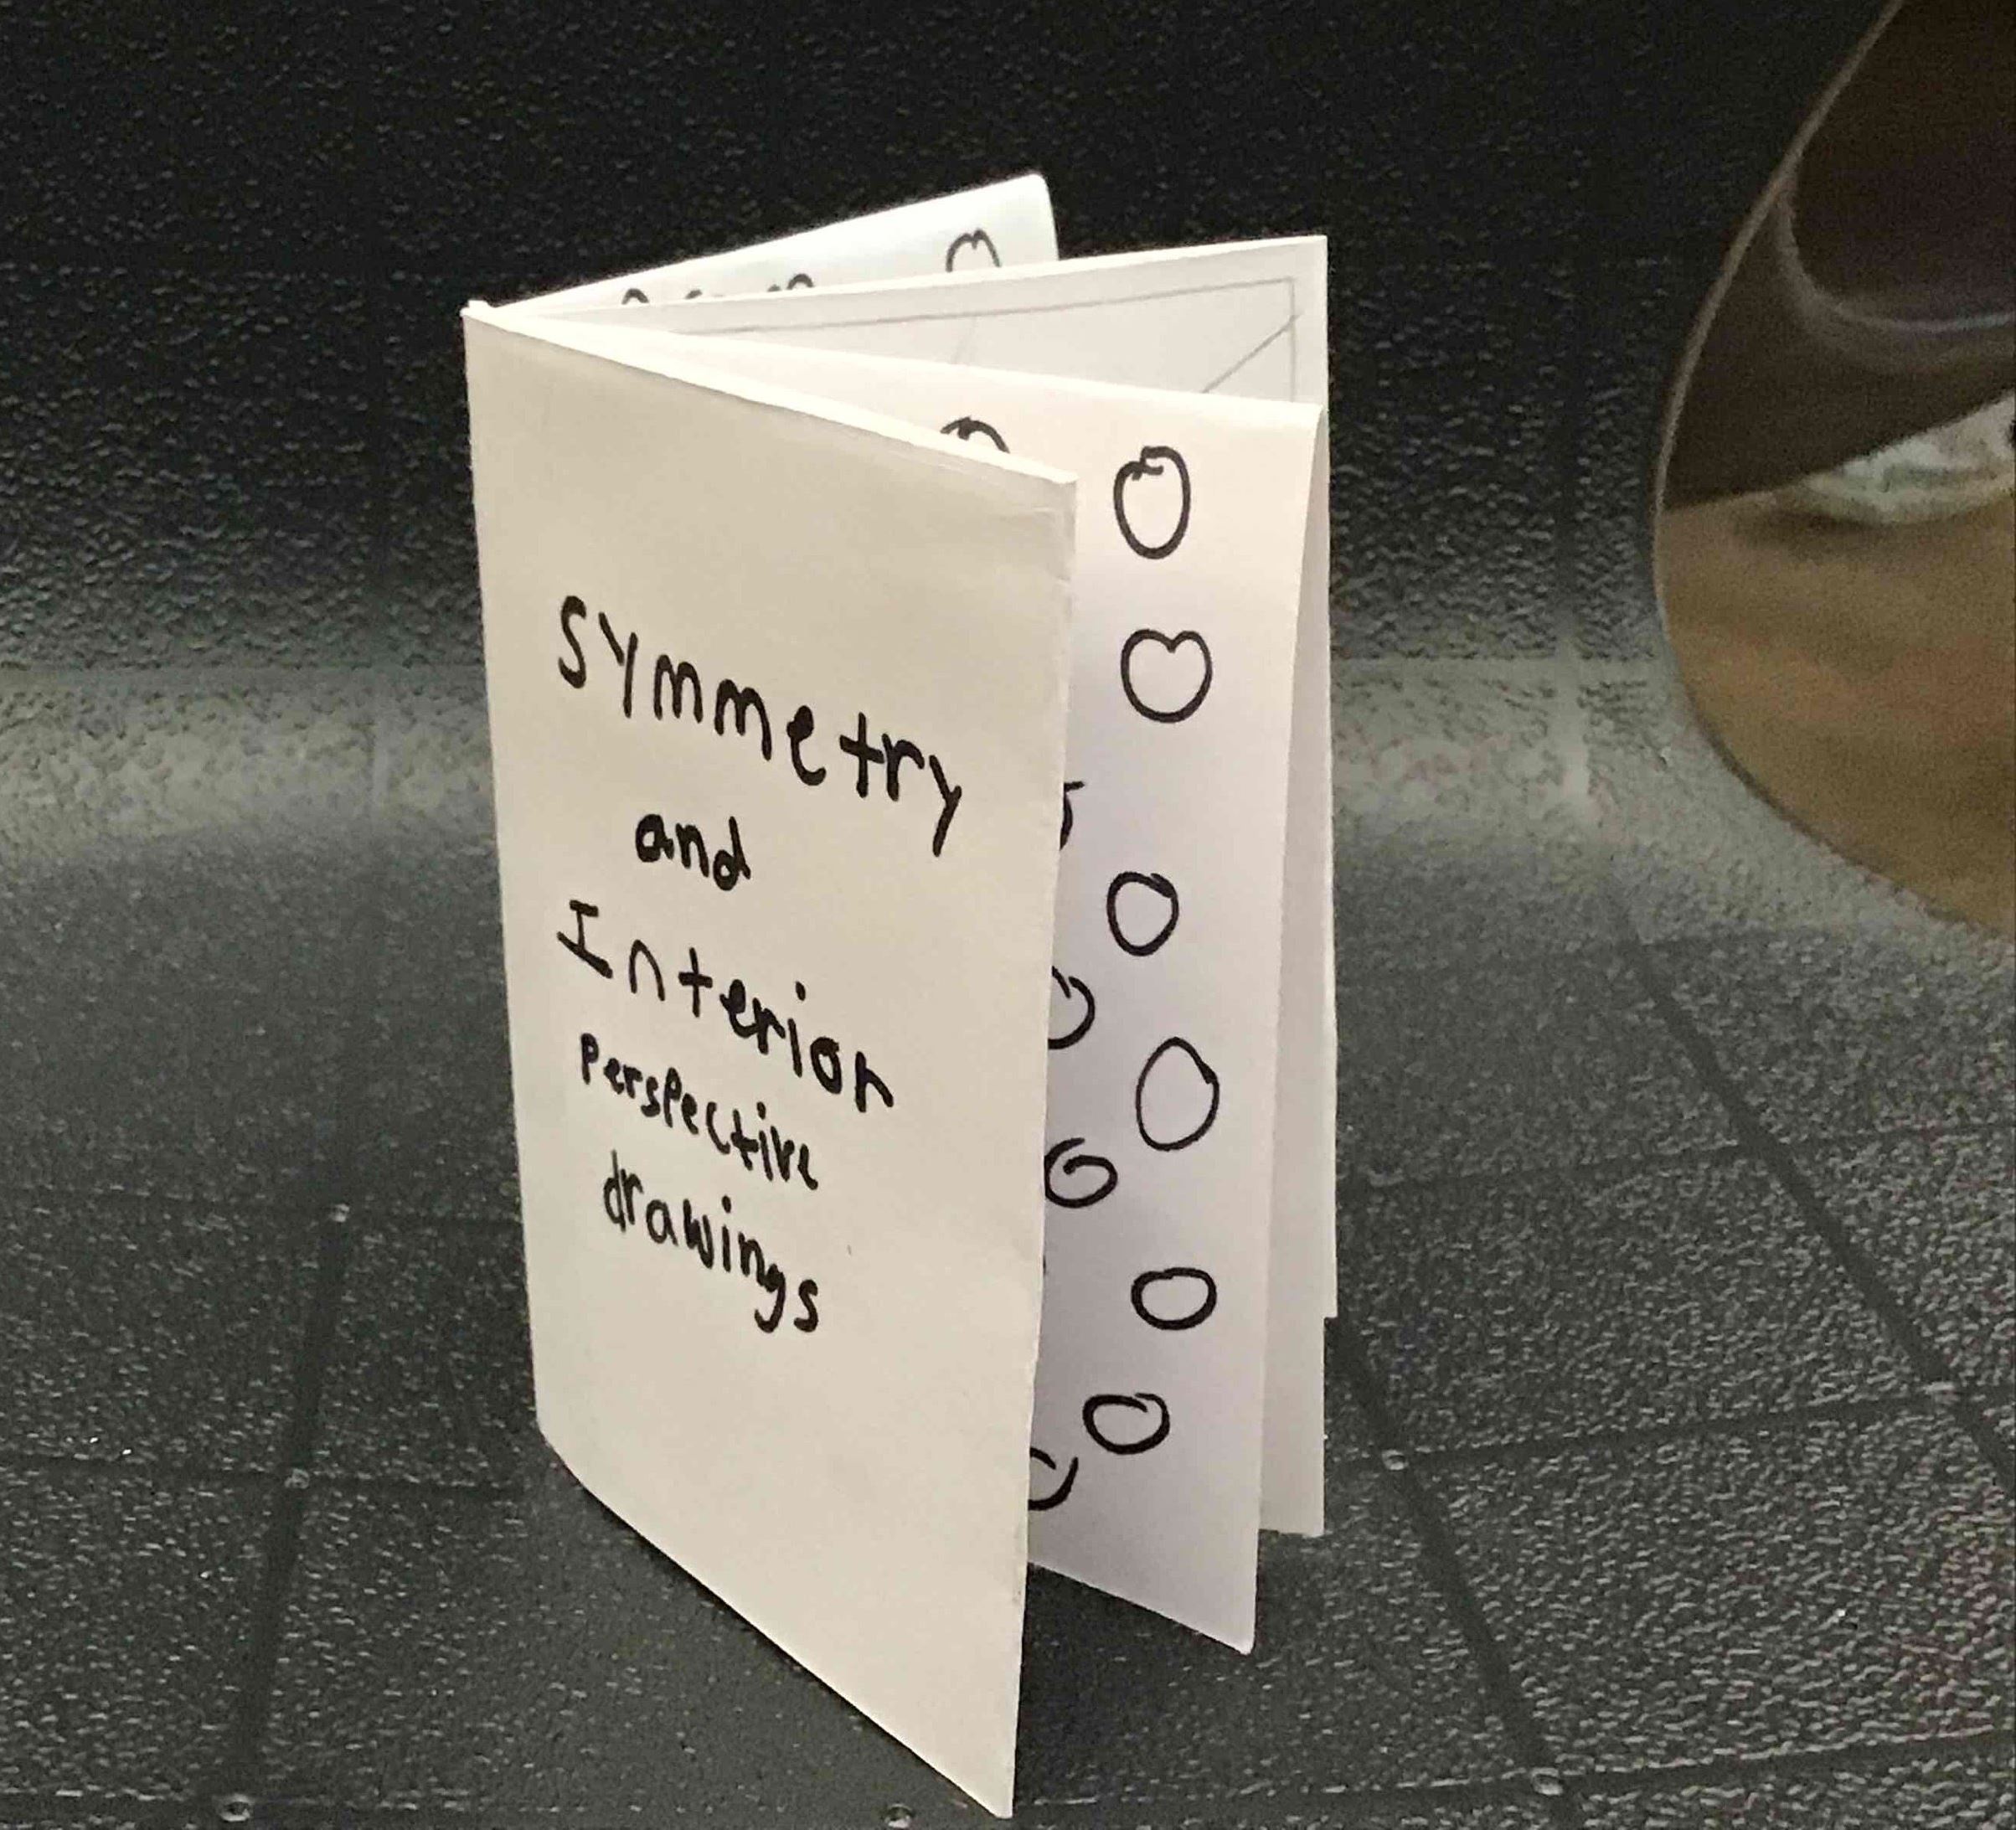 Symmetry
and
Interior
Perspective
drawings